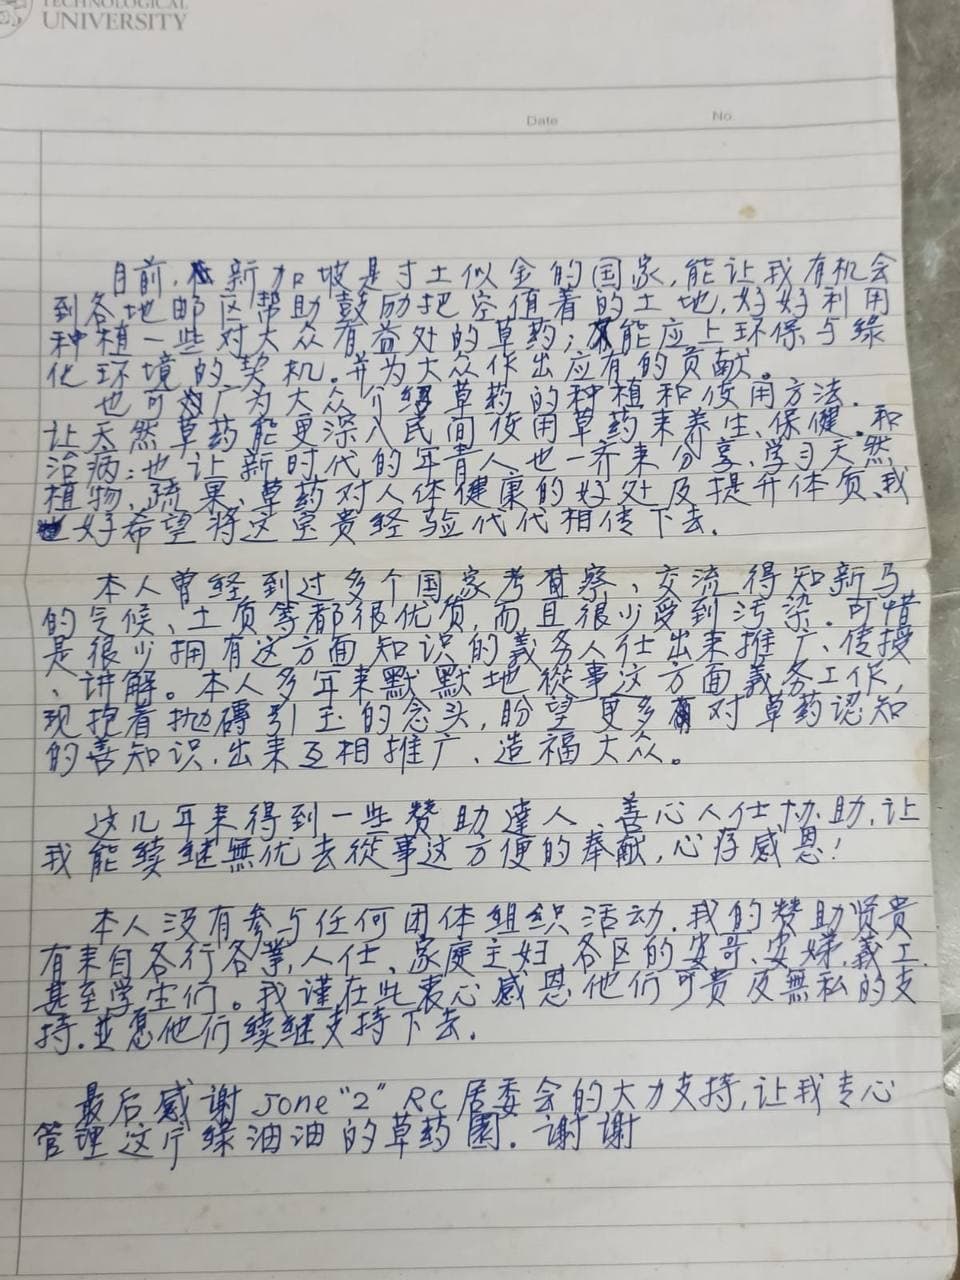 TECHNOLOGICAL
UNIVERSITY
Date
No.
目前,在新加坡是寸土似金的国家,能让我有机会
到各地邮区帮助鼓励把空值着的土地,好好利用
种植一些对大众有益处的草药;才能应上环保与绿
化环境的契机.并为大众作出应有的贡献。
也可广为大众介绍草药的种植和使用方法.
让天然草药能更深入民间使用草药来养生、保健.和
治病;也让新时代的年青人也一齐来分享、学习天然
植物、蔬果、草药对人体健康的好处及提升体质、我
好希望将这宝贵经验代代相传下去.
本人曾经到过多个国家考察、交流得知新马
的气候、土质等都很优质,而且很少受到污染.可惜
是很少拥有这方面知识的義务人仕出来推广、传授
、讲解。本人多年来默默地從事这方面義务工作,
现抱着抛磚引玉的念头,盼望更多有对草药认知
的善知识.出来互相推广、造福大众。
这几年来得到一些赞助達人、善心人仕协助,让
我能续继無优去從事这方便的奉献,心存感恩!
本人没有参与任何团体组织活动.我的赞助贤贵
有来自各行各業,人仕、家庭主妇、各区的安哥、安娣,義工.
甚至学生们。我谨在此衷心感恩他们可贵及無私的支
持.並愿他们续继支持下去.
最后感谢Jone"2" RC居委会的大力支持,让我专心
管理这片绿油油的草药園.谢谢